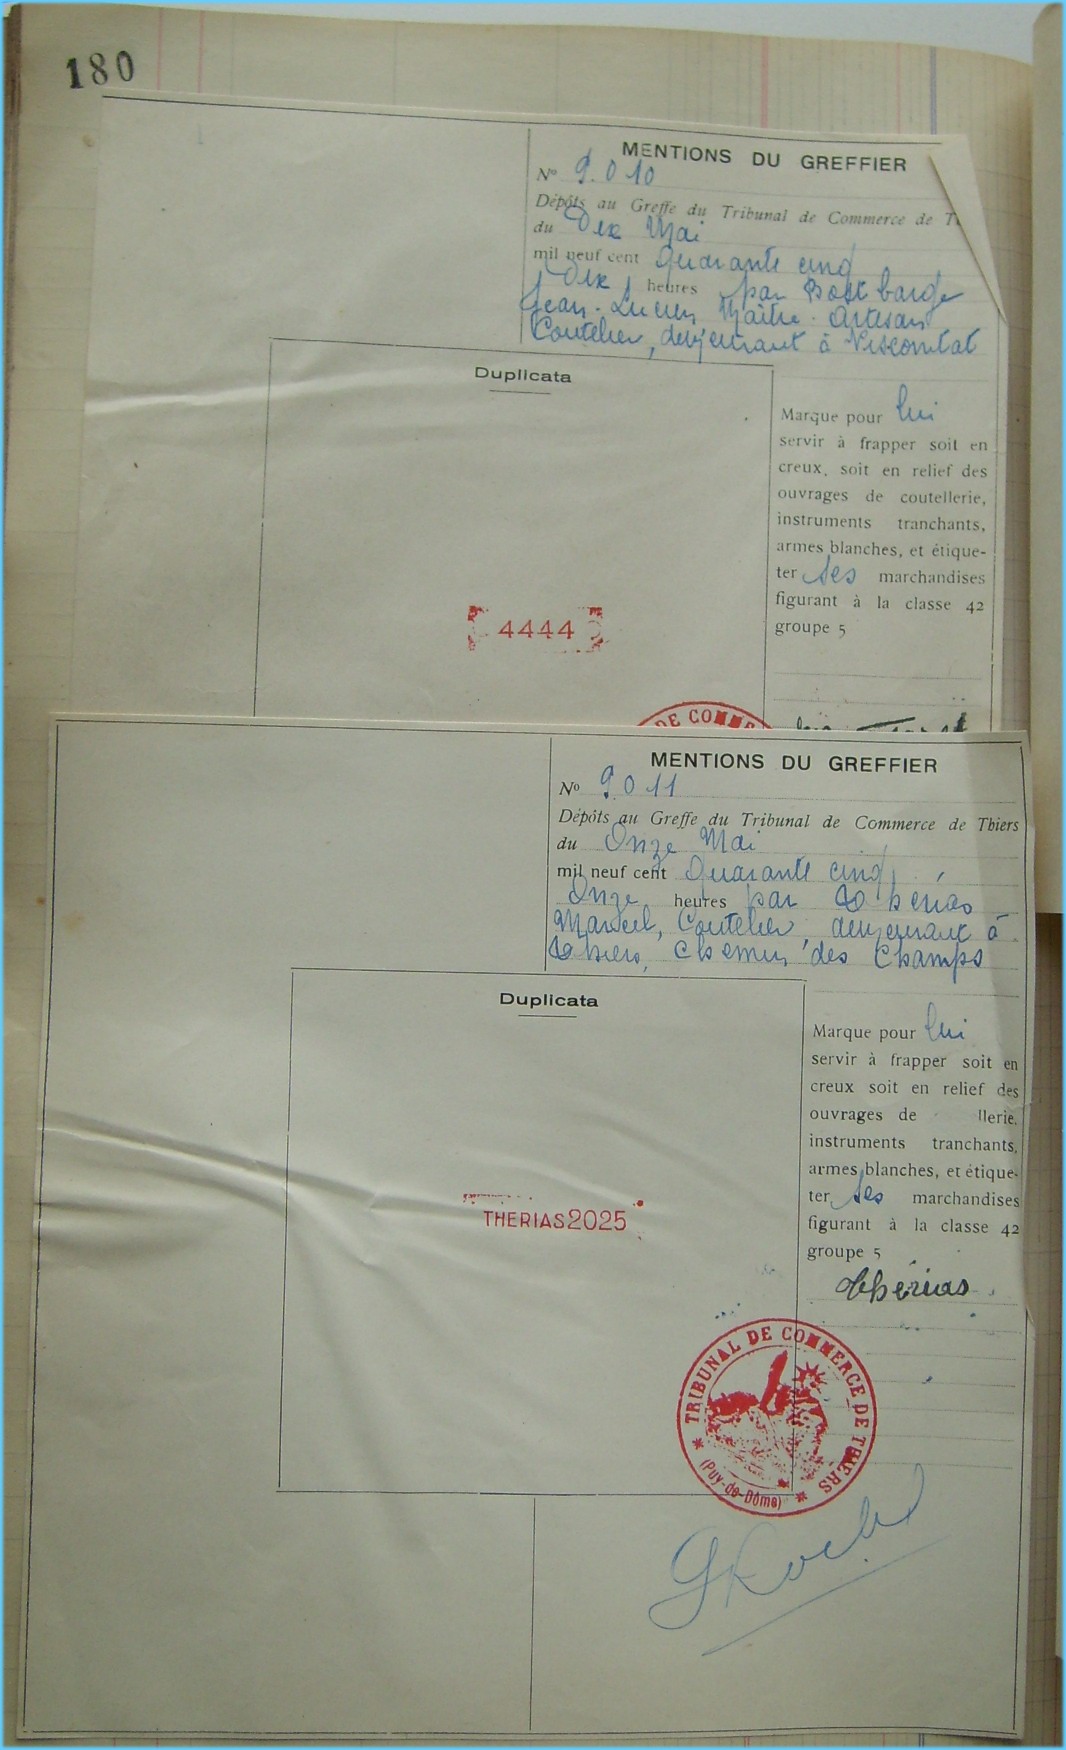 180
MENTIONS DU GREFFIER
N° 9.010
Dépôts au Greffe du Tribunal de Commerce de
du Dix Mai
mil neuf cent Quarante cinq
Dix heures par Bost barge
Jean-Lucien Maître-Artisan
Coutelier, demeurant à Viscomtat
Duplicata
Marque pour lui
servir à frapper soit en
creux, soit en relief des
ouvrages de coutellerie,
instruments tranchants,
armes blanches, et étique-
ter ses marchandises
figurant à la classe 42
groupe 5
4444
DE COMME
MENTIONS DU GREFFIER
N° 9011
Dépôts au Greffe du Tribunal de Commerce de Thiers
du Onze Mai
mil neuf cent Quarante cinq
Onze heures par Thérias
Marcel, Coutelier, demeurant à
Thiers, chemin des Champs
Duplicata
Marque pour lui
servir à frapper soit en
creux soit en relief des
ouvrages de llerie.
instruments tranchants,
armes blanches, et étique-
ter ses marchandises
figurant à la classe 42
groupe 5
THERIAS2025
Thérias
TRIBUNAL DE COMMERCE DE THIERS
(Puy-de-Dôme)